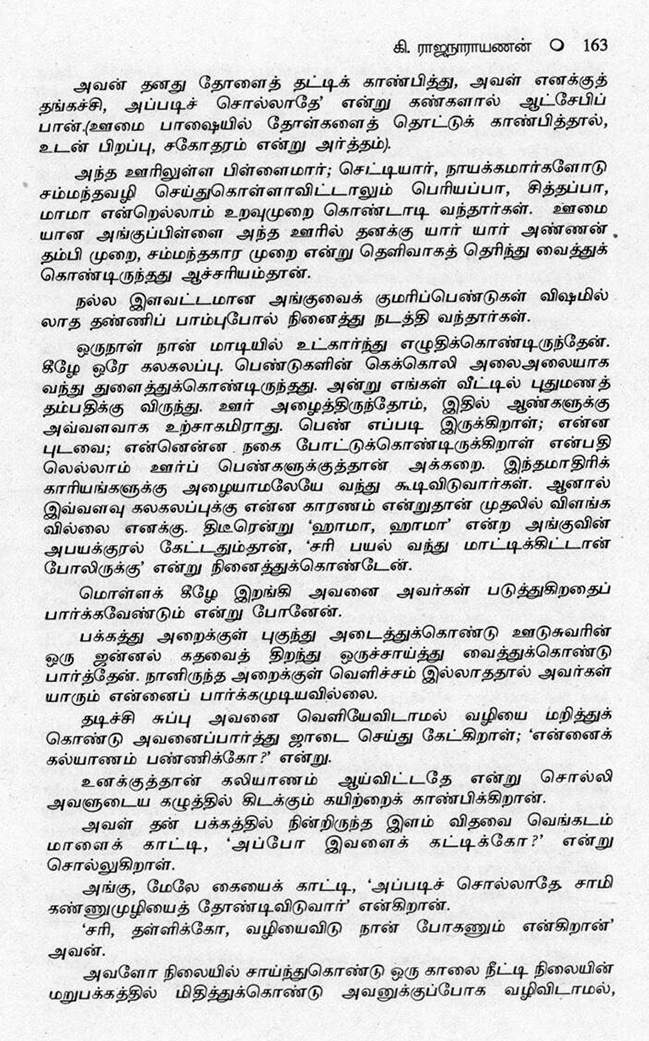 கி. ராஜநாராயணன் O 163
அவன் தனது தோளைத் தட்டிக் காண்பித்து, அவள் எனக்குத்
தங்கச்சி, அப்படிச் சொல்லாதே' என்று கண்களால் ஆட்சேபிப்
பான்.(ஊமை பாஷையில் தோள்களைத் தொட்டுக் காண்பித்தால்,
உடன் பிறப்பு, சகோதரம் என்று அர்த்தம்).
அந்த ஊரிலுள்ள பிள்ளைமார்; செட்டியார், நாயக்கமார்களோடு
சம்மந்தவழி செய்துகொள்ளாவிட்டாலும் பெரியப்பா, சித்தப்பா,
மாமா என்றெல்லாம் உறவுமுறை கொண்டாடி வந்தார்கள். ஊமை
யான அங்குப்பிள்ளை அந்த ஊரில் தனக்கு யார் யார் அண்ணன்
தம்பி முறை, சம்மந்தகார முறை என்று தெளிவாகத் தெரிந்து வைத்துக்
கொண்டிருந்தது ஆச்சரியம்தான்.
நல்ல இளவட்டமான அங்குவைக் குமரிப்பெண்டுகள் விஷமில்
லாத தண்ணிப் பாம்புபோல் நினைத்து நடத்தி வந்தார்கள்.
ஒருநாள் நான் மாடியில் உட்கார்ந்து எழுதிக்கொண்டிருந்தேன்.
கீழே ஒரே கலகலப்பு. பெண்டுகளின் கெக்கொலி அலைஅலையாக
வந்து துளைத்துக்கொண்டிருந்தது. அன்று எங்கள் வீட்டில் புதுமணத்
தம்பதிக்கு விருந்து. ஊர் அழைத்திருந்தோம், இதில் ஆண்களுக்கு
அவ்வளவாக உற்சாகமிராது. பெண் எப்படி இருக்கிறாள்; என்ன
புடவை; என்னென்ன நகை போட்டுக்கொண்டிருக்கிறாள் என்பதி
லெல்லாம் ஊர்ப் பெண்களுக்குத்தான் அக்கறை. இந்தமாதிரிக்
காரியங்களுக்கு அழையாமலேயே வந்து கூடிவிடுவார்கள். ஆனால்
இவ்வளவு கலகலப்புக்கு என்ன காரணம் என்றுதான் முதலில் விளங்க
வில்லை எனக்கு. திடீரென்று 'ஹாமா, ஹாமா' என்ற அங்குவின்
அபயக்குரல் கேட்டதும்தான், 'சரி பயல் வந்து மாட்டிக்கிட்டான்
போலிருக்கு' என்று நினைத்துக்கொண்டேன்.
மொள்ளக் கீழே இறங்கி அவனை அவர்கள் படுத்துகிறதைப்
பார்க்கவேண்டும் என்று போனேன்.
பக்கத்து அறைக்குள் புகுந்து அடைத்துக்கொண்டு ஊடுசுவரின்
ஒரு ஜன்னல் கதவைத் திறந்து ஒருச்சாய்த்து வைத்துக்கொண்டு
பார்த்தேன். நானிருந்த அறைக்குள் வெளிச்சம் இல்லாததால் அவர்கள்
யாரும் என்னைப் பார்க்கமுடியவில்லை.
தடிச்சி சுப்பு அவனை வெளியேவிடாமல் வழியை மறித்துக்
கொண்டு அவனைப்பார்த்து ஜாடை செய்து கேட்கிறாள்; 'என்னைக்
கல்யாணம் பண்ணிக்கோ?' என்று.
உனக்குத்தான் கலியாணம் ஆய்விட்டதே என்று சொல்லி
அவளுடைய கழுத்தில் கிடக்கும் கயிற்றைக் காண்பிக்கிறான்.
அவள் தன் பக்கத்தில் நின்றிருந்த இளம் விதவை வெங்கடம்
மாளைக் காட்டி, 'அப்போ இவளைக் கட்டிக்கோ?' என்று
சொல்லுகிறாள்.
அங்கு, மேலே கையைக் காட்டி, 'அப்படிச் சொல்லாதே. சாமி
கண்ணுமுழியைத் தோண்டிவிடுவார்' என்கிறான்.
'சரி, தள்ளிக்கோ, வழியைவிடு நான் போகணும் என்கிறான்'
அவன்.
அவளோ நிலையில் சாய்ந்துகொண்டு ஒரு காலை நீட்டி நிலையின்
மறுபக்கத்தில் மிதித்துக்கொண்டு அவனுக்குப்போக வழிவிடாமல்,